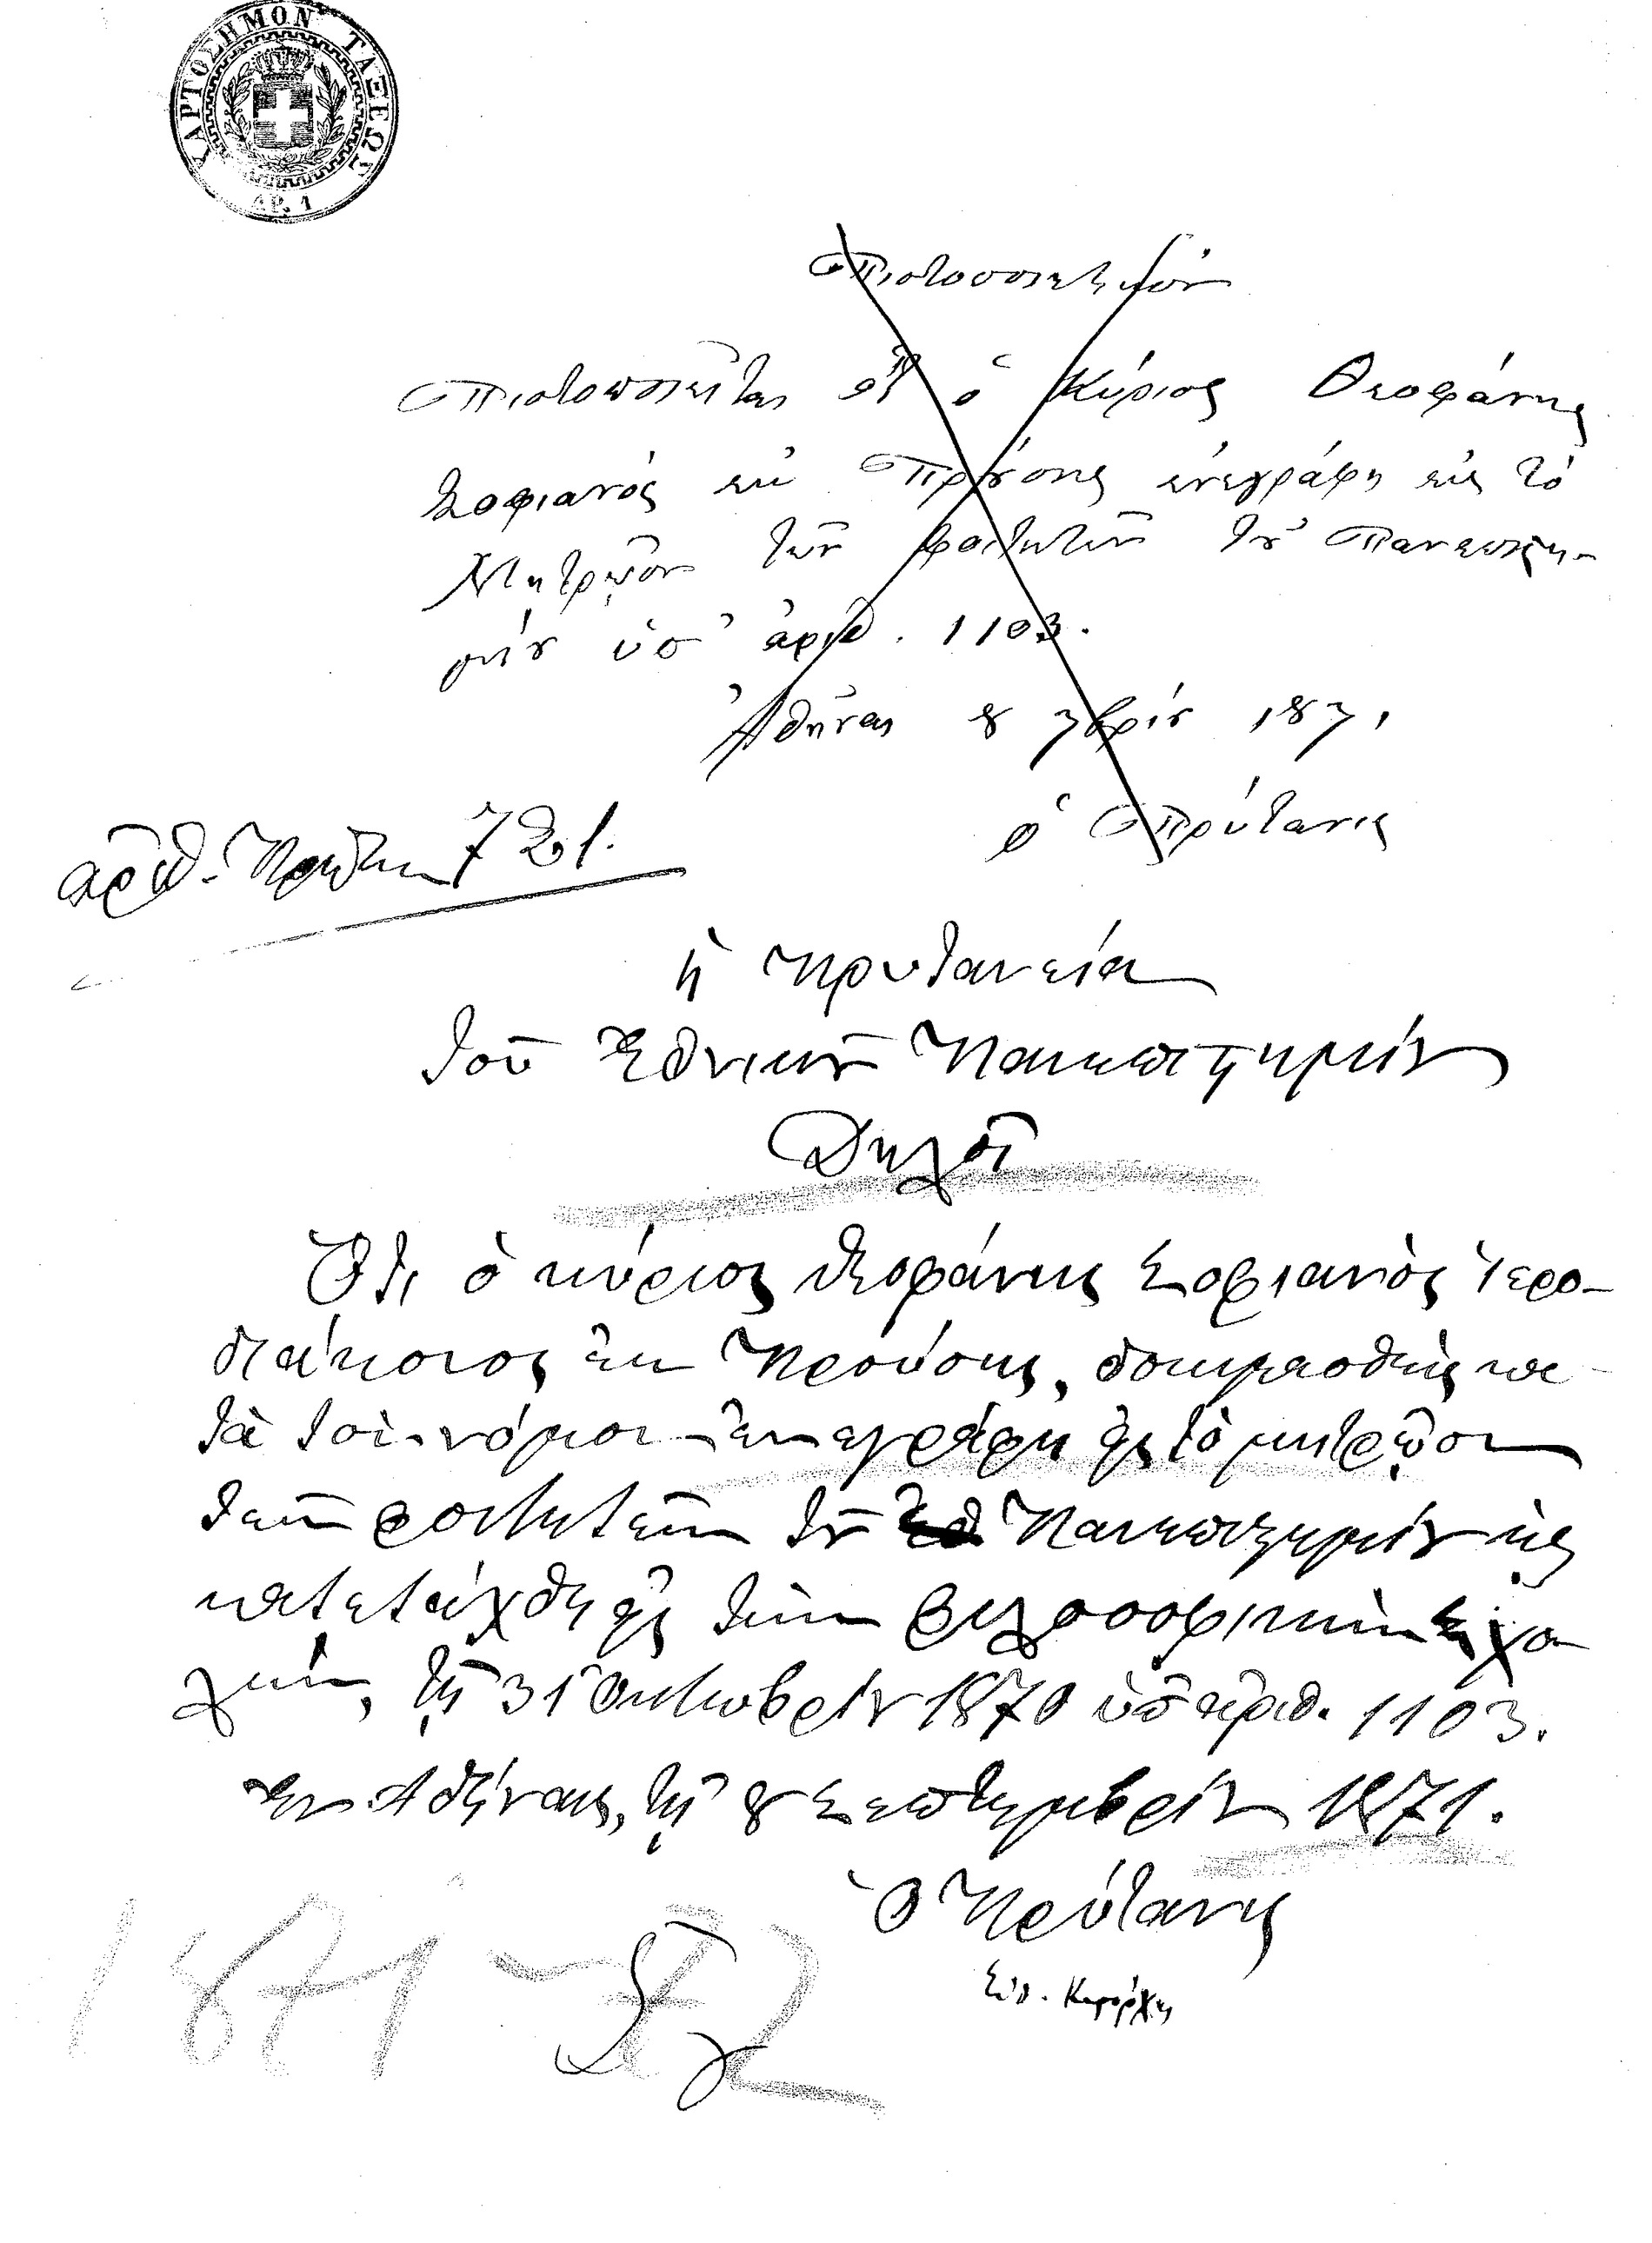 ΧΑΡΤΟΣΗΜΟΝ ΤΑΞΕΩΣ
ΑΡ. 1
Πιστοποιητικὸν
Πιστοποιεῖται ὅτι ὁ Κύριος Θεοφάνης
Σοφιανὸς ἐκ Προύσης ἐνεγράφη εἰς τὸ
Μητρῷον τῶν φοιτητῶν τοῦ Πανεπιστη-
μίου ὑπ' ἀριθ. 1103.
Ἀθῆναι 8 7βρίου 1871
ὁ Πρύτανις
ἀριθ. Πρωτ. 721.
ἡ Πρυτανεία
τοῦ Ἐθνικοῦ Πανεπιστημίου
Δηλοῖ
Ὅτι ὁ κύριος Θεοφάνης Σοφιανὸς Ἱερο-
διάκονος ἐκ Προύσης, δοκιμασθεὶς κα-
τὰ τὸν νόμον ἐνεγράφη εἰς τὸ μητρῷον
τῶν φοιτητῶν τοῦ Πανεπιστημίου καὶ
κατετάχθη εἰς τὴν φιλοσοφικὴν Σχο-
λὴν, τῇ 31 Ὀκτωβρίου 1870 ὑπ' ἀριθ. 1103.
Ἐν Ἀθήναις, τῇ 8 Σεπτεμβρίου 1871.
Ὁ Πρύτανις
Εὐθ. Καστόρχης
1871-72